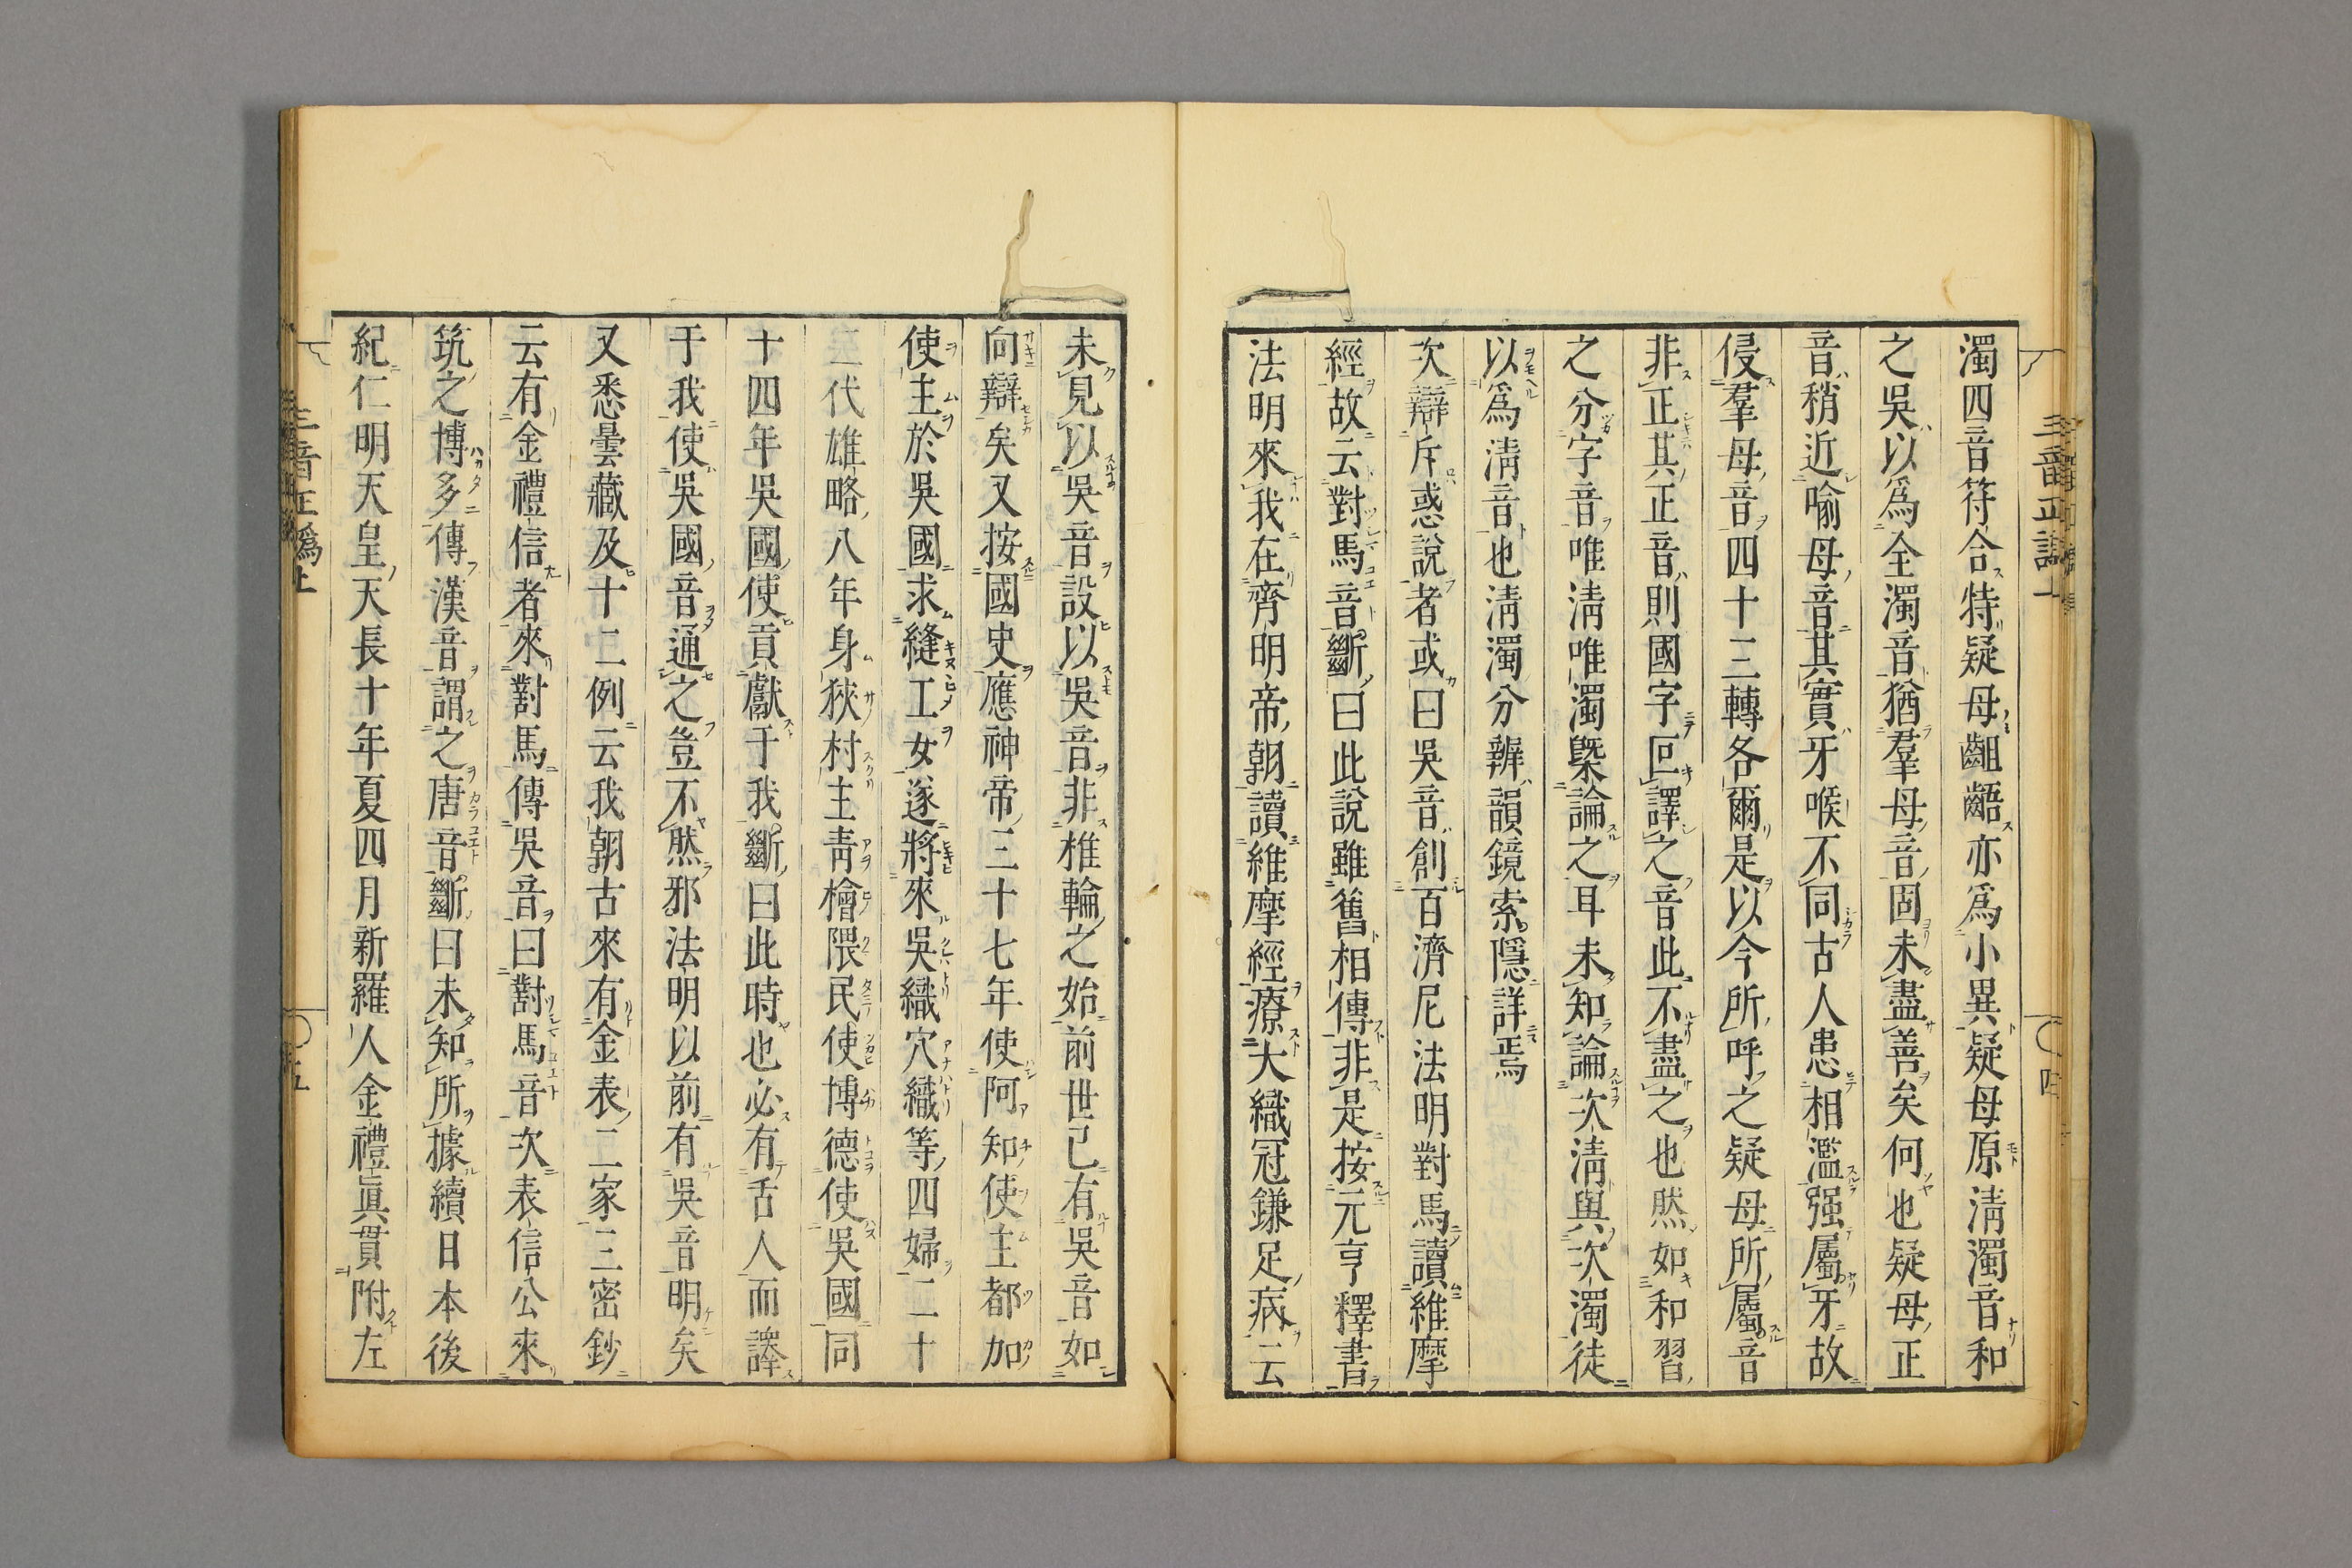 濁四音符合特疑母齟齬亦爲小異疑母原淸濁音和
之吳以爲全濁音猶羣母音固未盡善矣何也疑母正
音稍近喻母音其實牙喉不同古人患相濫强屬牙故
侵羣母音四十三轉各爾是以今所呼之疑母所屬音
非正其正音則國字叵譯之音此不盡之也然如和習
之分字音唯淸唯濁槩論之耳未知論次淸與次濁徒
以爲淸音也淸濁分辨韻鏡索隱詳焉
次辯斥惑說者或曰吳音創百濟尼法明對馬讀維摩
經故云對馬音斷曰此說雖舊相傳非是按元亨釋書
法明來我在齊明帝朝讀維摩經療大織冠鎌足病云
未見以吳音設以吳音非椎輪之始前世已有吳音如
向辯矣又按國史應神帝三十七年使阿知使主都加
使主於吳國求縫工女遂將來吳織穴織等四婦二十
二代雄略八年身狹村主靑檜隈民使博德使吳國同
十四年吳國使貢獻于我斷曰此時也必有舌人而譯
于我使吳國音通之豈不然邪法明以前有吳音明矣
又悉曇藏及十二例云我朝古來有金表二家三密鈔
云有金禮信者來對馬傳吳音曰對馬音次表信公來
筑之博多傳漢音謂之唐音斷曰未知所據續日本後
紀仁明天皇天長十年夏四月新羅人金禮眞貫附左